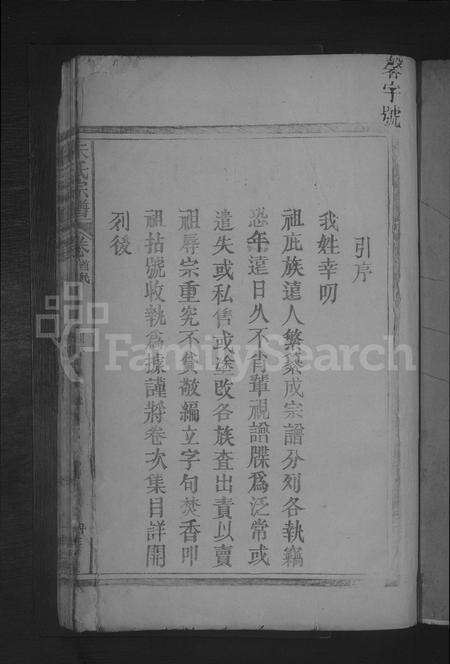 馨字號
引序
我姓幸叨
祖庇族遠人繁纂成宗譜分列各執竊
恐年遠日久不肖輩視譜牒爲泛常或
遺失或私售或塗改各族查出責以賣
祖辱宗重究不貸敬編立字句焚香叩
祖拈號收執爲據謹將卷次集目詳開
列後
氏宗譜
卷首
FamilySearch